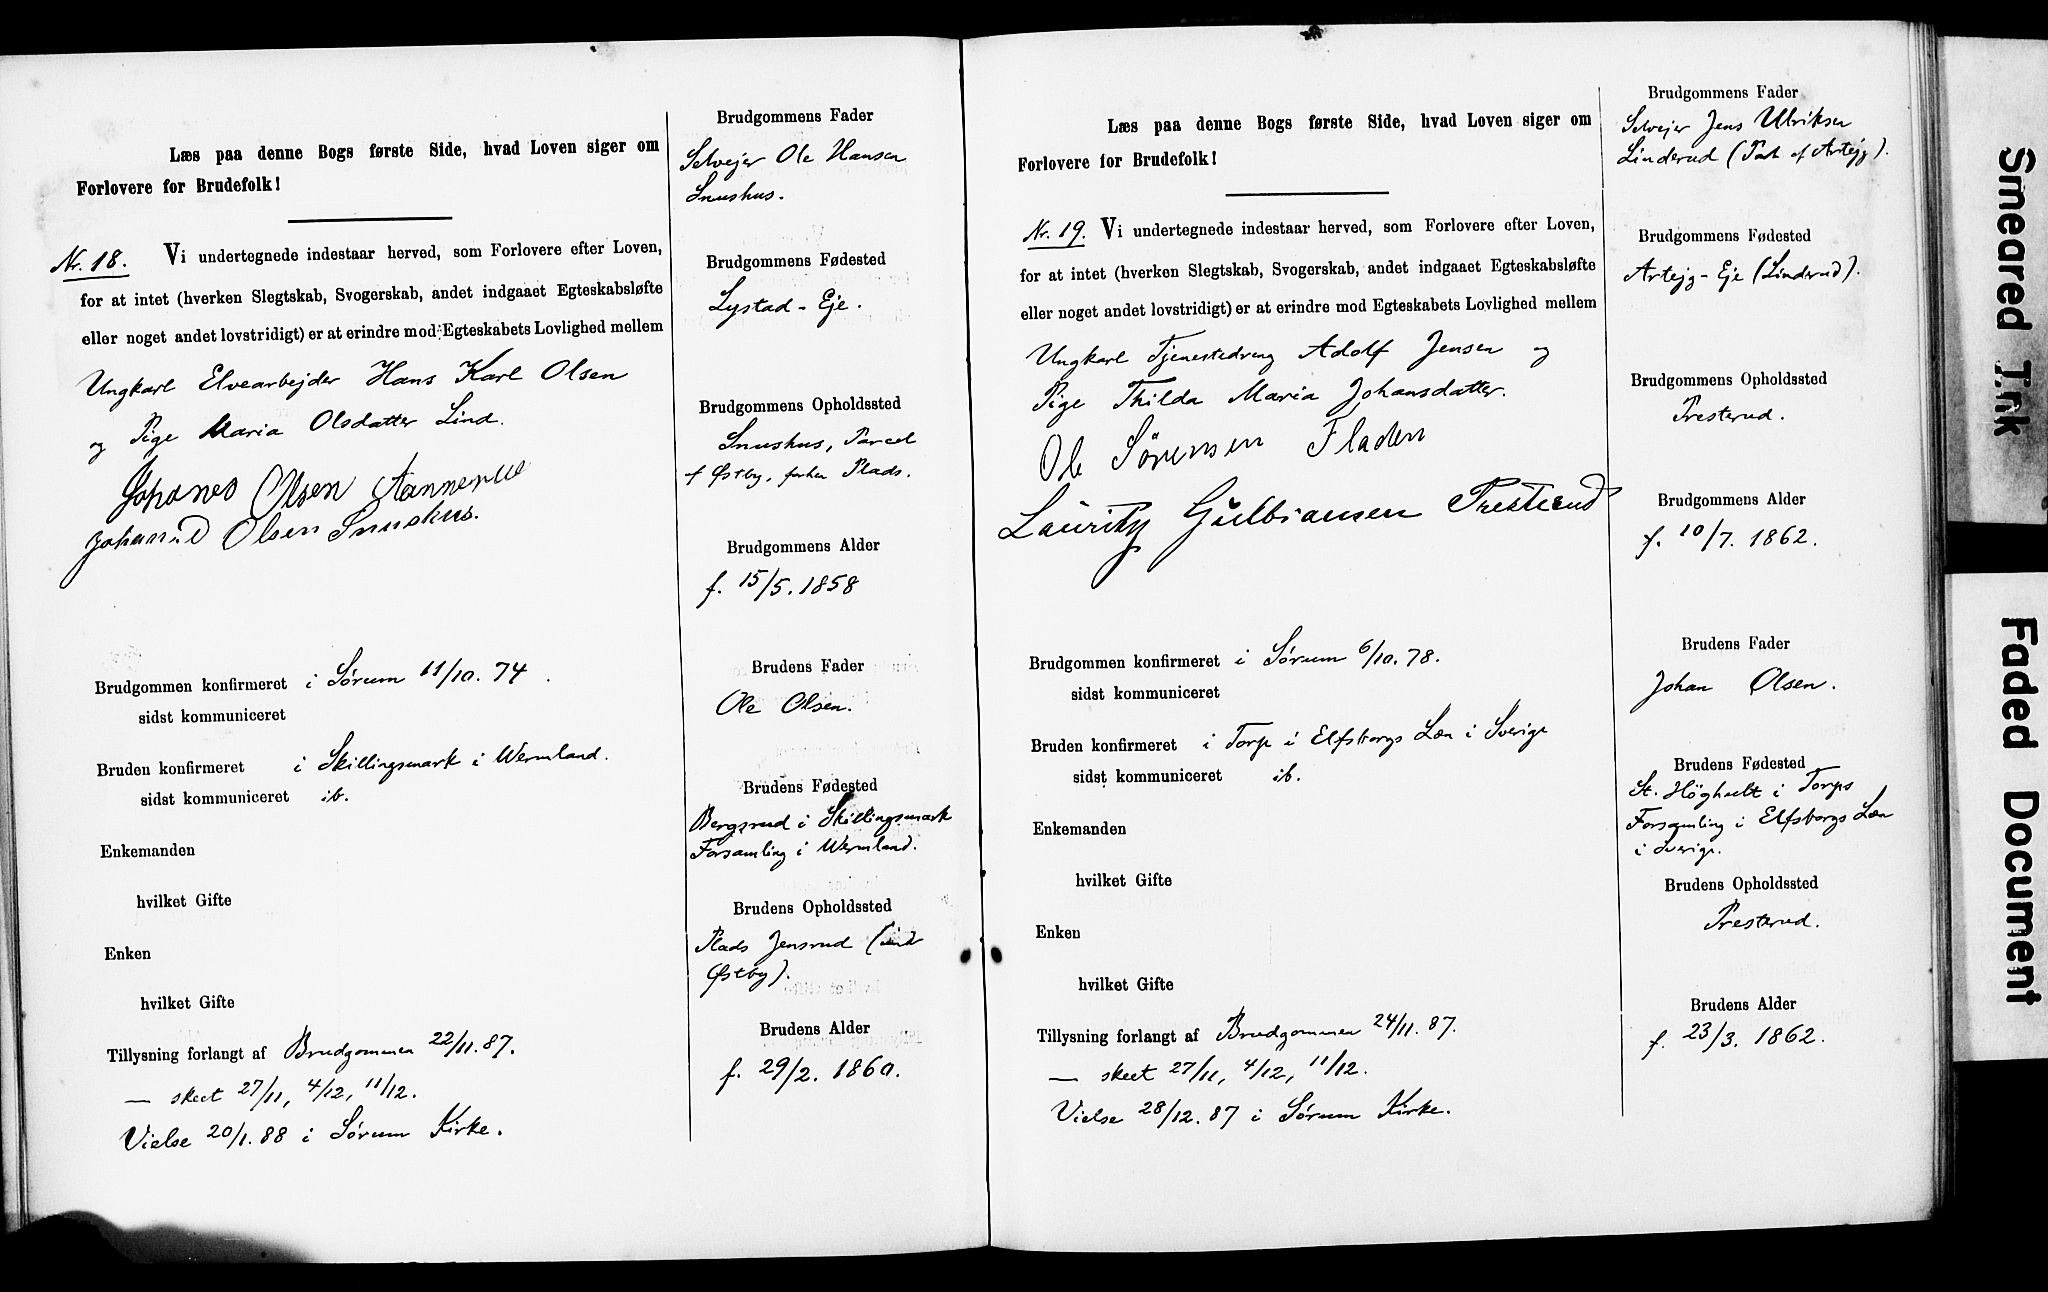 Læs paa denne Bogs første Side, hvad Loven siger om
Forlovere for Brudefolk!
Nr. 18. Vi undertegnede indestaar herved, som Forlovere efter Loven,
for at intet (hverken Slegtskab, Svogerskab, andet indgaaet Egteskabsløfte
eller noget andet lovstridigt) er at erindre mod Egteskabets Lovlighed mellem
Ungkarl Elvearbejder Hans Karl Olsen
og Pige Maria Olsdatter Lind.
Johanes Olsen
Olsen Snushus.
Brudgommen konfirmeret i Sørum 11/10. 74.
sidst kommuniceret
Bruden konfirmeret i Skillingsmark i Wermland.
sidst kommuniceret ib.
Enkemanden
hvilket Gifte
Enken
hvilket Gifte
Tillysning forlangt af Brudgommen 22/11. 87.
— skeet 27/11, 4/12, 11/12.
Vielse 20/1. 88 i Sørum Kirke.
Brudgommens Fader
Selvejer Ole Hansen
Snushus.
Brudgommens Fødested
Lystad-Eje.
Brudgommens Opholdssted
Snushus, Parcel
f Østby, forhen Plads.
Brudgommens Alder
f. 15/5. 1858
Brudens Fader
Ole Olsen.
Brudens Fødested
Bergsrud i Skillingsmark
Forsamling i Wermland.
Brudens Opholdssted
Plads Jensrud (und
Østby).
Brudens Alder
f. 29/2. 1860.
Læs paa denne Bogs første Side, hvad Loven siger om
Forlovere for Brudefolk!
Nr. 19. Vi undertegnede indestaar herved, som Forlovere efter Loven,
for at intet (hverken Slegtskab, Svogerskab, andet indgaaet Egteskabsløfte
eller noget andet lovstridigt) er at erindre mod Egteskabets Lovlighed mellem
Ungkarl Tjenestedreng Adolf Jensen og
Pige Thilda Maria Johansdatter.
Ole Sørensen Fladen
Lauritz Gulbransen Presterud
Brudgommen konfirmeret i Sørum 6/10. 78.
sidst kommuniceret
Bruden konfirmeret i Torp i Elfsborgs Læn i Sverige
sidst kommuniceret ib.
Enkemanden
hvilket Gifte
Enken
hvilket Gifte
Tillysning forlangt af Brudgommen 24/11. 87.
— skeet 27/11, 4/12, 11/12.
Vielse 28/12. 87 i Sørum Kirke.
Brudgommens Fader
Selvejer Jens Ulriksen
Linderud (Part af Artejg).
Brudgommens Fødested
Artejg-Eje (Linderud).
Brudgommens Opholdssted
Presterud.
Brudgommens Alder
f. 10/7. 1862.
Brudens Fader
Johan Olsen.
Brudens Fødested
St. Höghult i Torps
Forsamling i Elfsborgs Læn
i Sverige.
Brudens Opholdssted
Presterud.
Brudens Alder
f. 23/3. 1862.
Smeared Ink
Faded Document